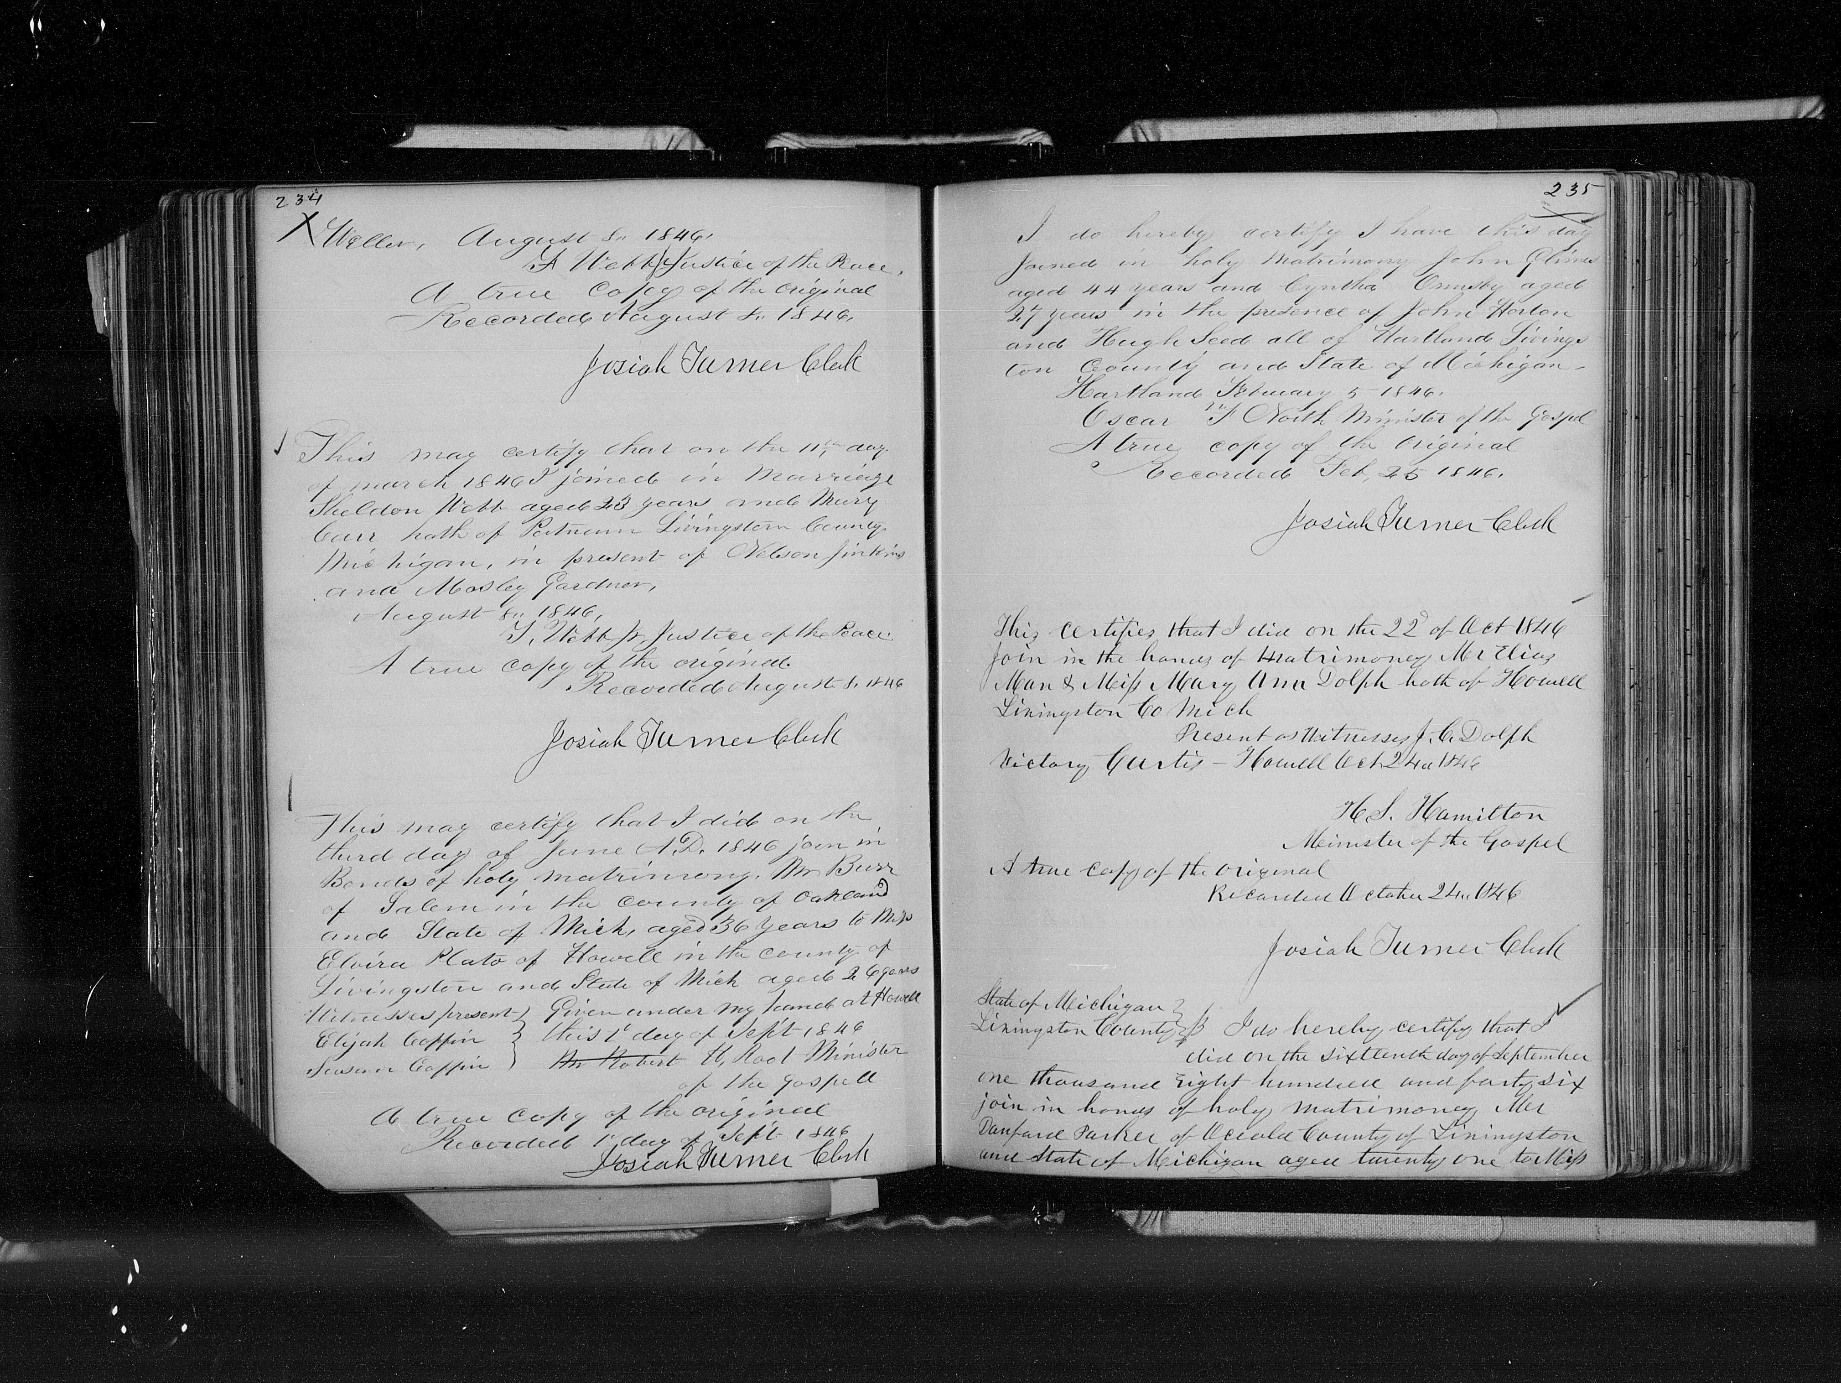 234
X Weller, August 8" 1846.
T Webb Jr Justice of the Peace.
A true Copy of the original
Recorded August 8" 1846.
Josiah Turner Clerk
This may certify that on the 11th day
of march 1846 I joined in Marriage
Sheldon Webb aged 23 years and Mary
Carr both of Putnam Livingston County.
Michigan, in present of Nelson Jinkins
and Mosley Gardner,
August 8" 1846.
T. Webb Jr, Justice of the Peace
A true copy of the original
Recorded August 8, 1846
Josiah Turner Clerk
This may certify that I did on the
third day of June A.D. 1846 join in
Bonds of holy matrimony. Mr Burr
of Salem in the county of Oakland
and State of Mich, aged 36 years to Miss
Elvira Plato of Howell in the county of
Livingston and State of Mich aged 26 years
Witnesses present } Given under my hand at Howell
Elijah Coffin } this 1st day of Sept 1846
Susan Coffin } Mr Robert H, Root Minister
of the Gospell
A true copy of the original
Recorded 1st day of Sept 1846
Josiah Turner Clerk
235
I do hereby certify I have this day
Joined in holy Matrimony John
aged 44 years and Cyntha Ormsby aged
27 years in the presence of John Horton
and Hugh Seed all of Hartland Livings
ton County and State of Michigan-
Hartland February 5 1846.
Oscar F North Minister of the Gospel
A true copy of the original
Recorded Feb, 25 1846.
Josiah Turner Clerk
This certifies that I did on the 22d of Oct 1846
Join in the bonds of matrimoney Mr Elias
Man & Miss Mary Ann Dolph both of Howell
Livingston Co Mich
Present as Witnesses J. C. Dolph
Victory Curtis - Howell Oct 24" 1846
H S. Hamilton
Minister of the Gospel
A true copy of the original
Recorded October 24" 1846
Josiah Turner Clerk
State of Michigan }
Livingston County } ss I do hereby certify that I
did on the sixteenth day of September
one thousand Eight hundred and forty six
join in bonds of holy matrimoney Mr
Danford Parker of Oceola County of Livingston
and State of Michigan aged twenty one to Miss